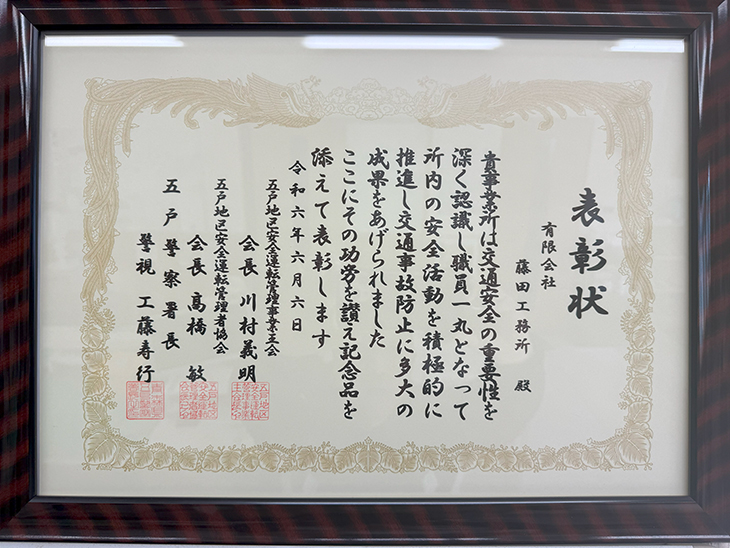 表彰状
有限会社
藤田工務所 殿
貴事業所は交通安全の重要性を
深く認識し職員一丸となって
所内の安全活動を積極的に
推進し交通事故防止に多大の
成果をあげられました
ここにその功労を讃え記念品を
添えて表彰します
令和六年六月六日
五戸地区安全運転管理事業主会
会長 川村義明
五戸地区安全運転管理者協会
会長 高橋敏
五戸警察署長
警視 工藤寿行